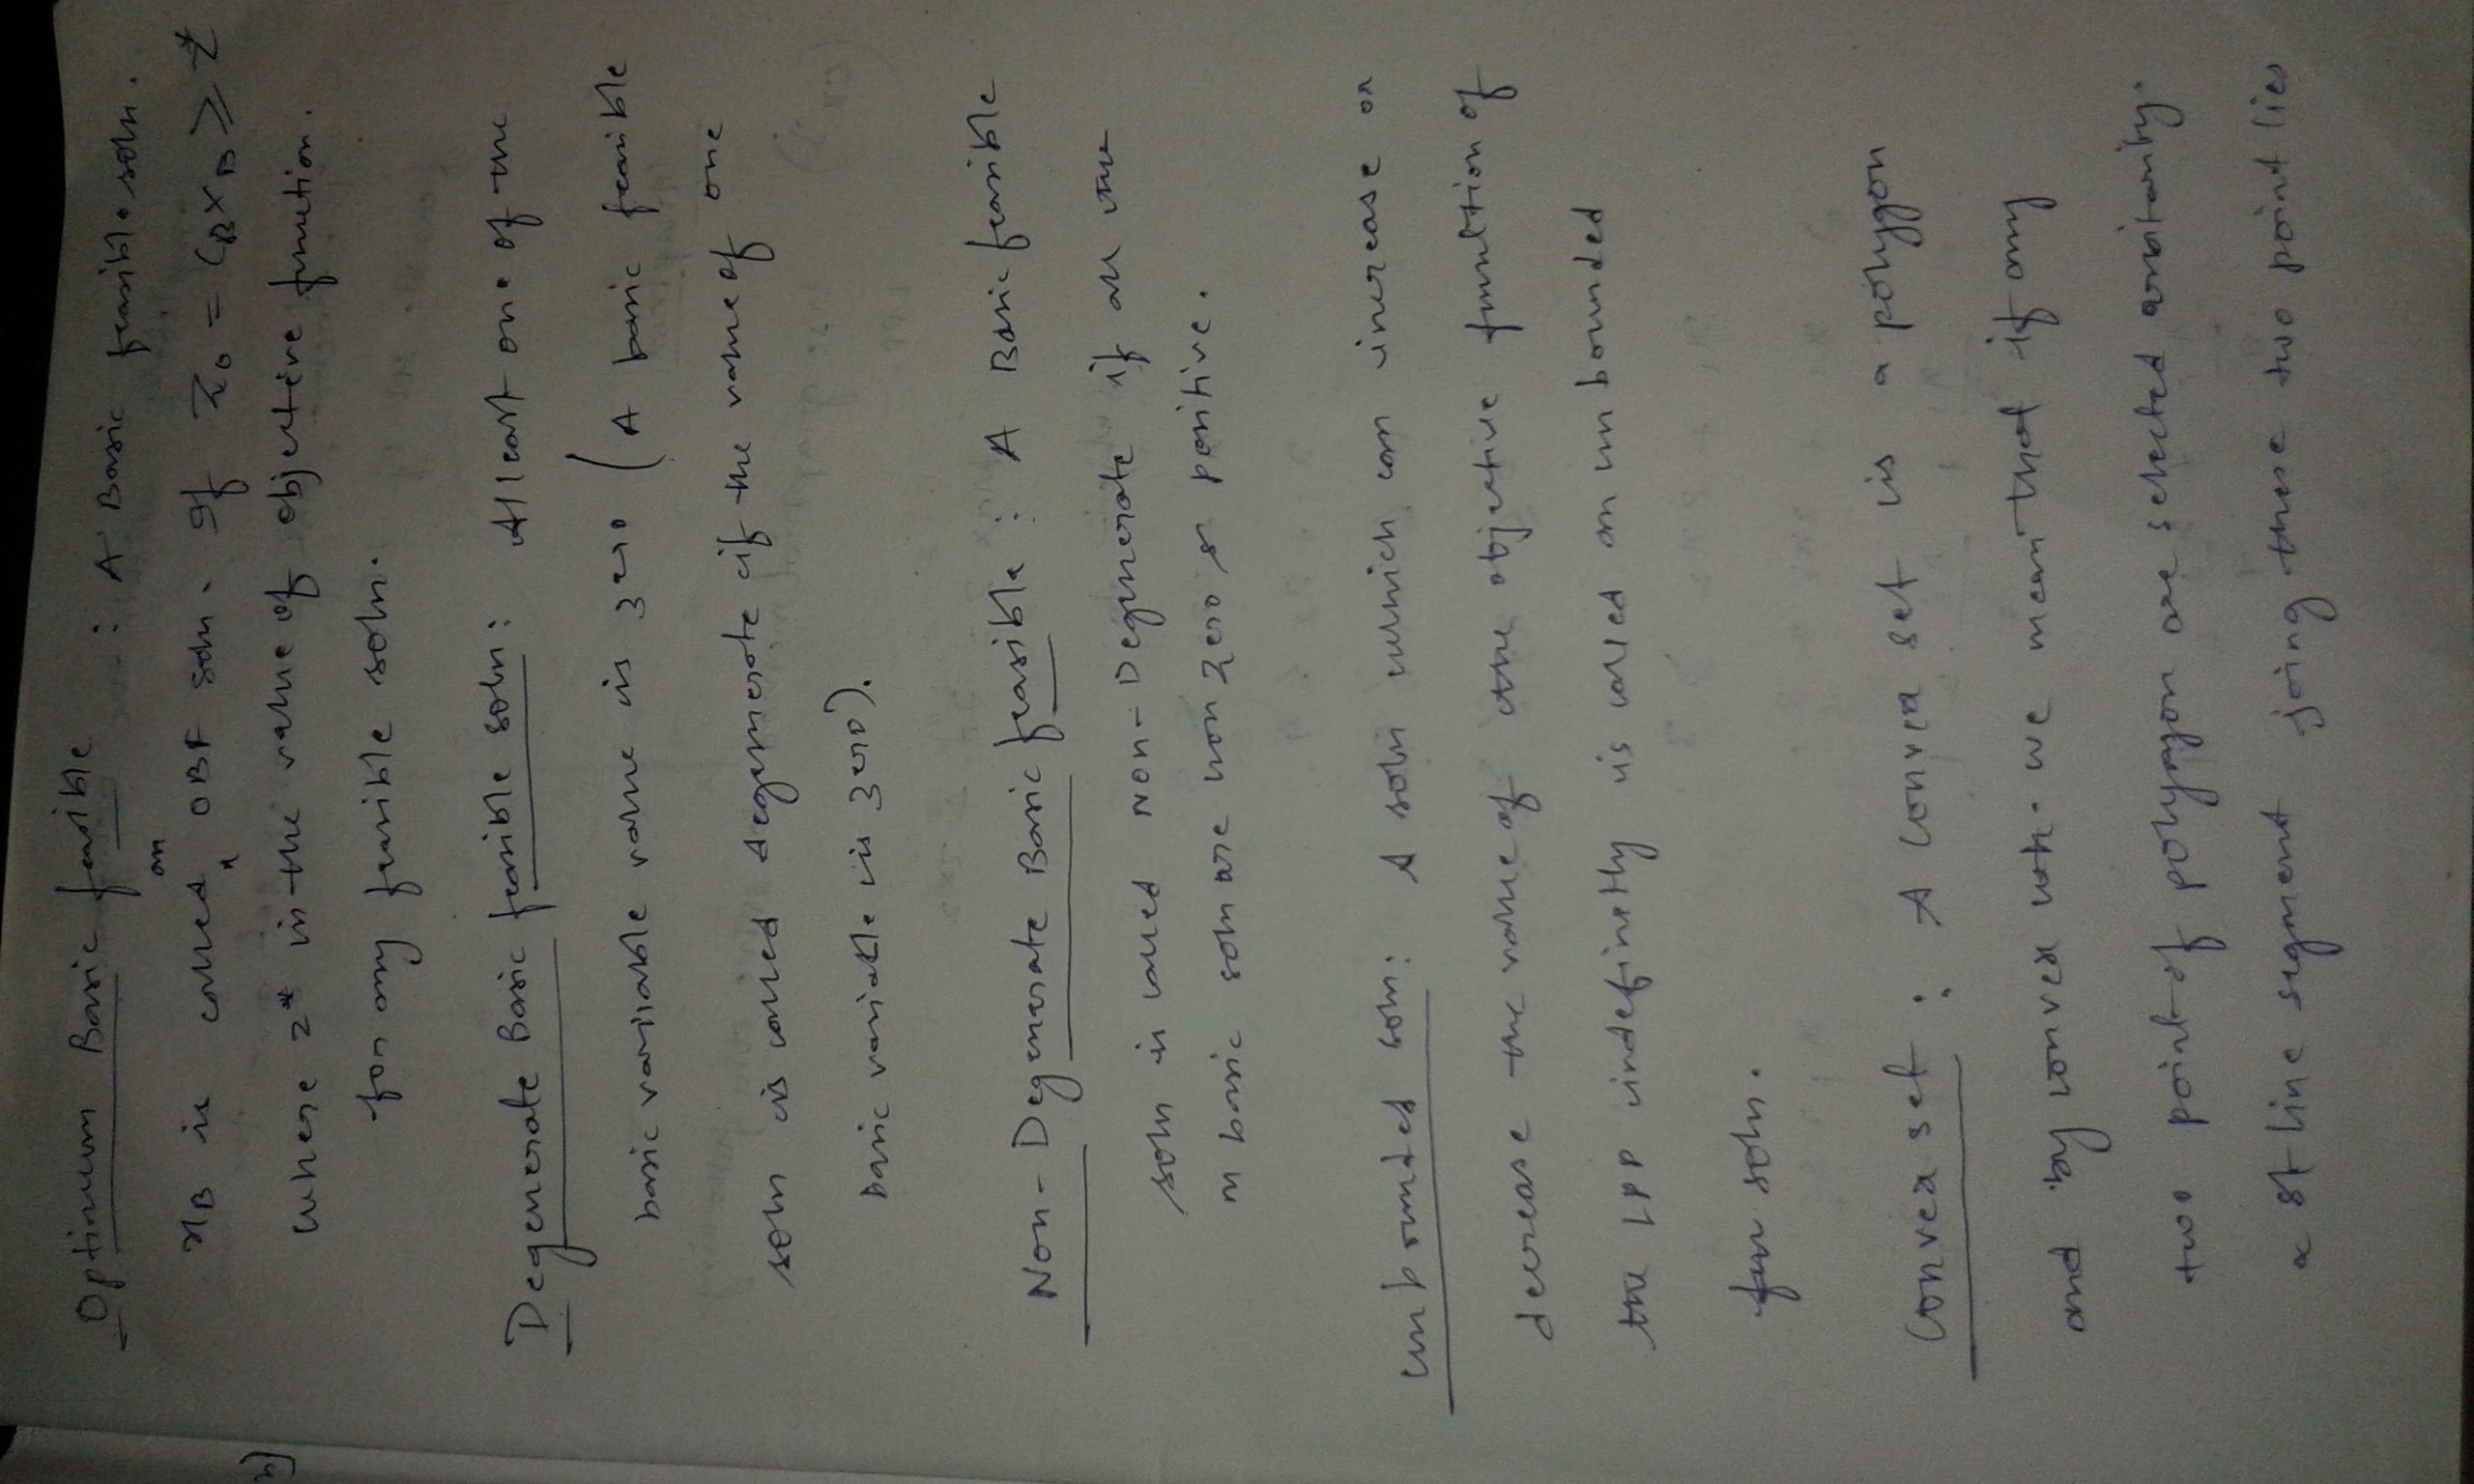 Optimum Basic feasible : A Basic feasible soln.
xB is called an OBF soln. If Z0 = CBXB ≥ Z*
where z* is the value of objective function.
for any feasible soln.
Degenerate Basic feasible soln: Atleast one of the
basic variable value is zero (A basic feasible
soln is called degenerate if the value of one
basic variable is zero).
Non-Degenerate Basic feasible : A Basic feasible
soln is called Non-Degenerate if all the
m basic soln are non zero & positive.
unbounded soln: A soln which can increase or
decrease the value of the objective function of
the LPP indefinetly is called an unbounded
soln.
Convex set : A convex set is a polygon
and by convex we mean that if any
two point of polygon are selected arbitarily.
a st line segment joing these two point lies